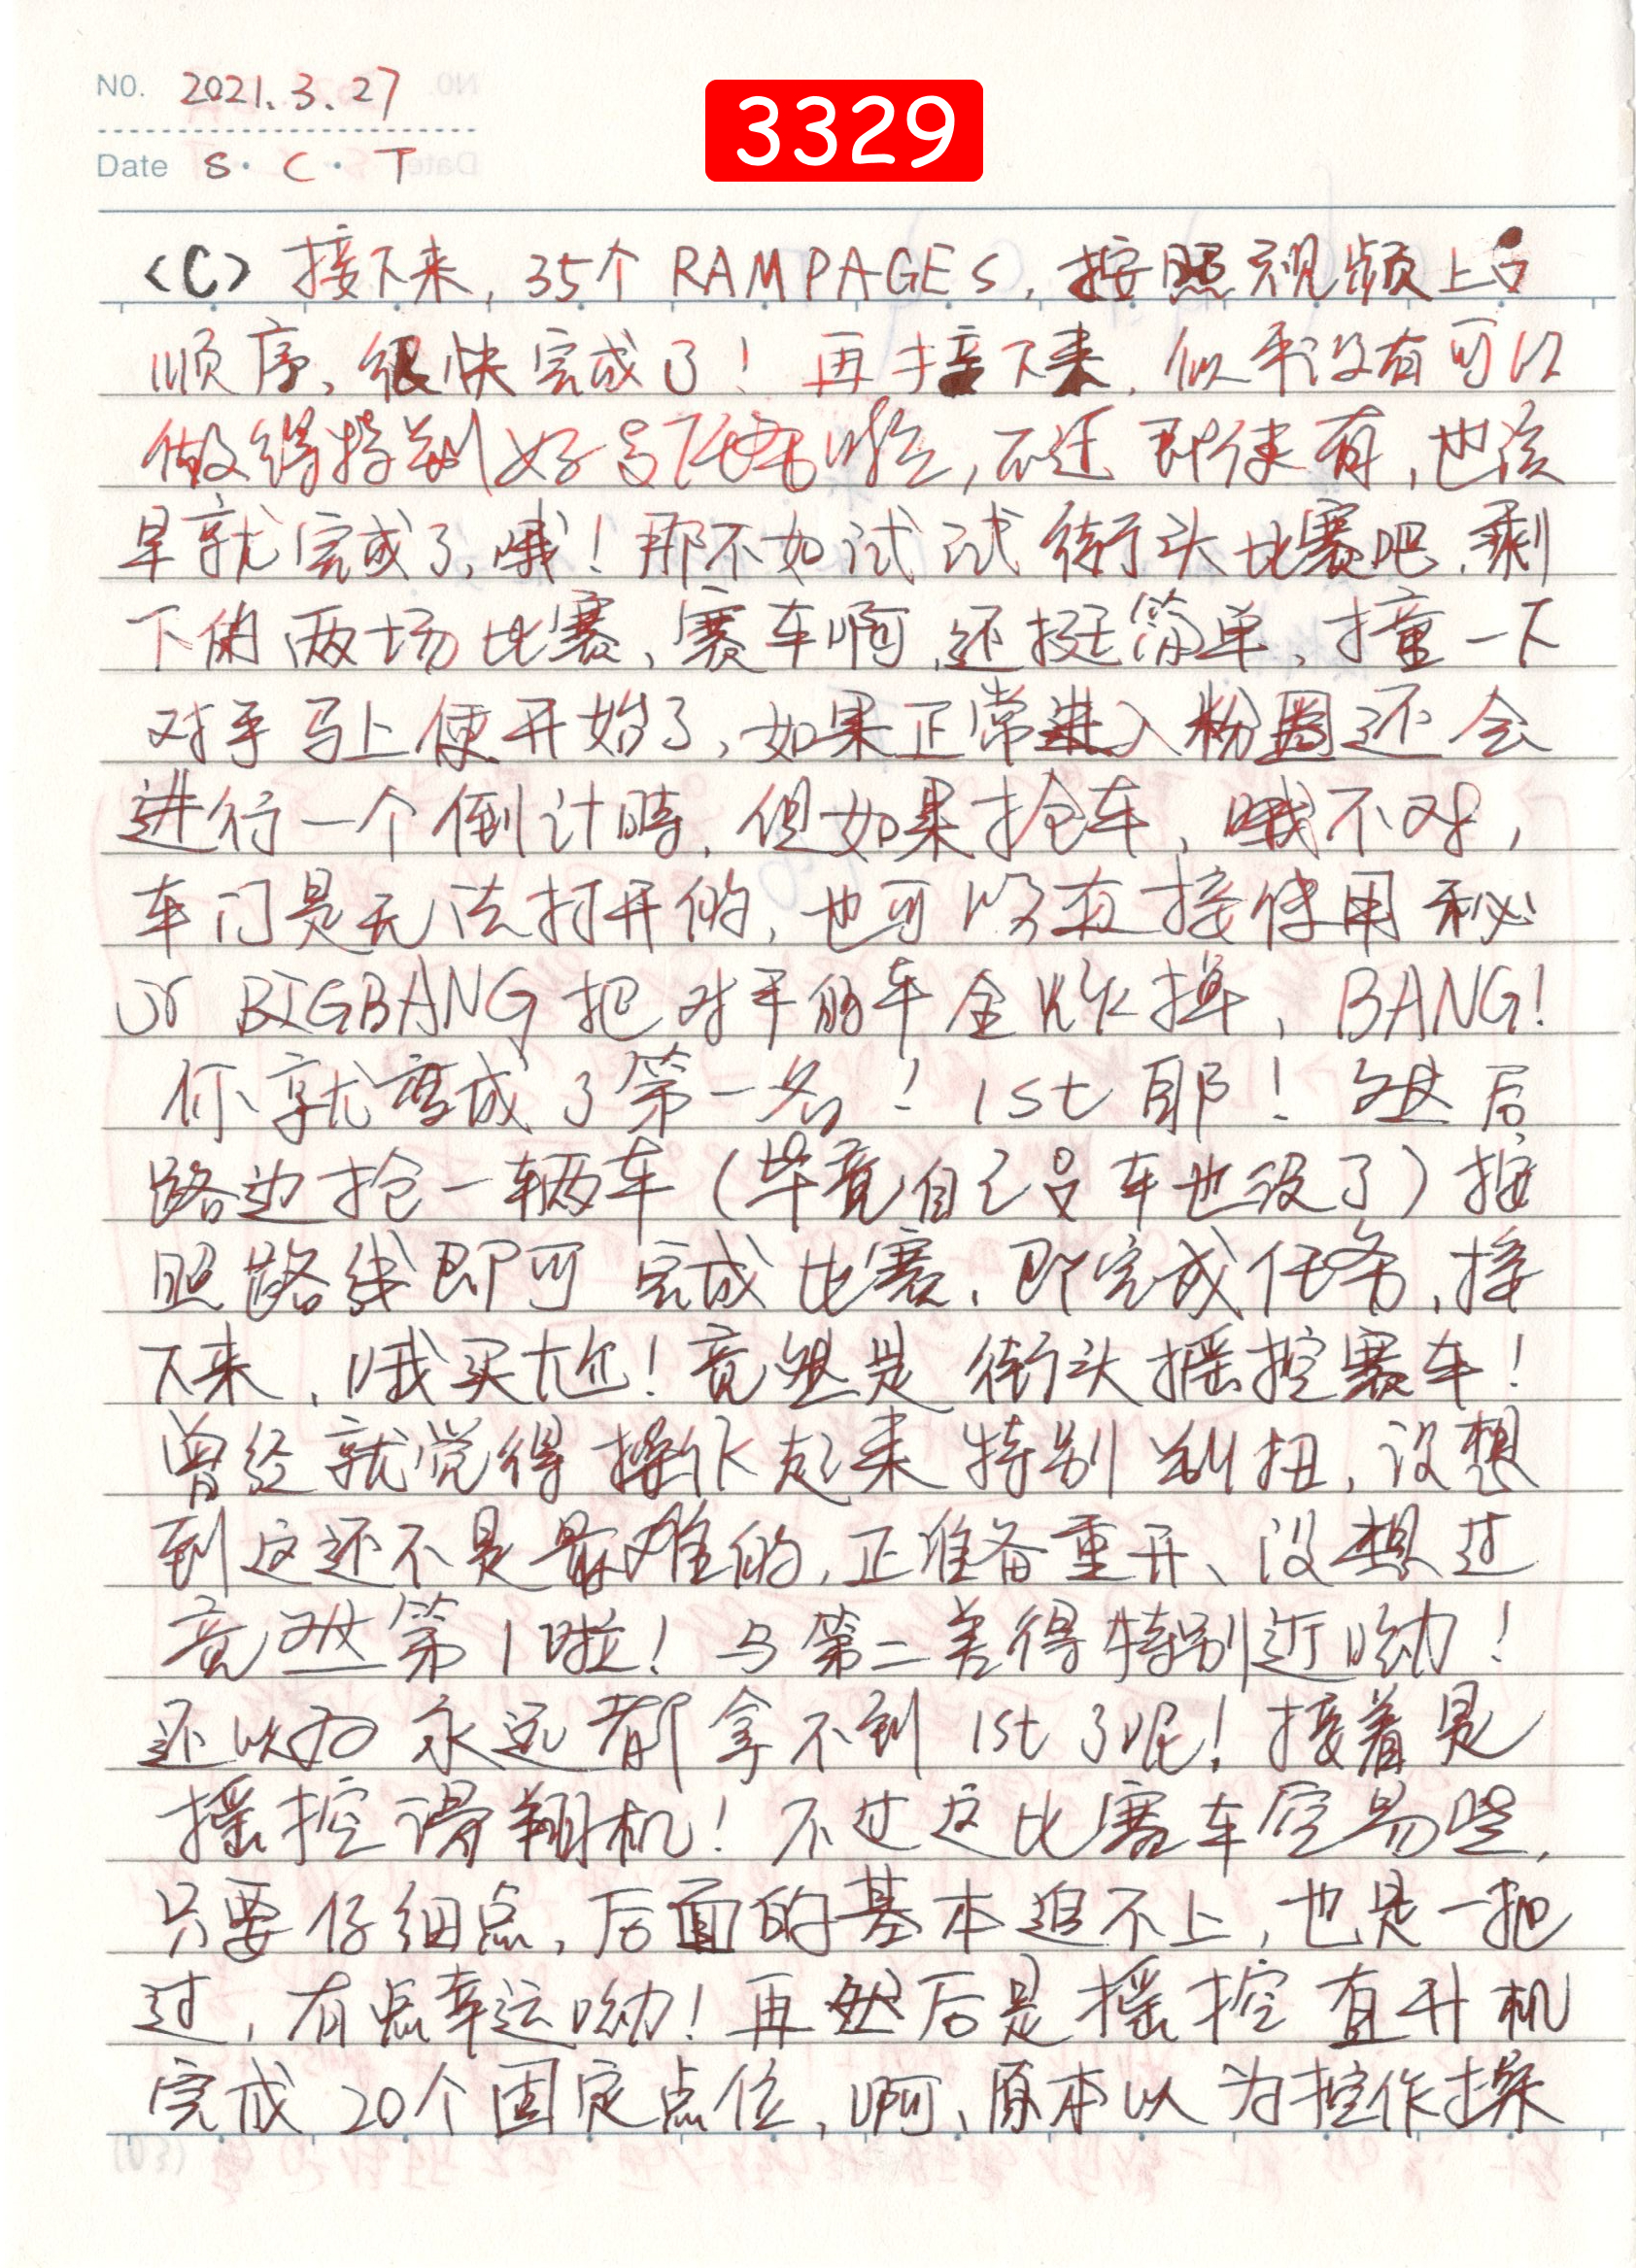 NO. 2021.3.27
3329
Date S·C·T
<C>接下来，35个RAMPAGES，按照视频上的
顺序，很快完成了！再接下来，似乎没有可以
做得特别好的任务啦，不过即使有，也该
早就完成了，哦！那不如试试街头比赛吧，剩
下俩两场比赛、赛车啊，还挺简单，撞一下
对手马上便开始了，如果正常进入粉圈还会
进行一个倒计时，但如果抢车，哦不对，
车门是无法打开的，也可以直接使用秘
or BIGBANG把对手的车全炸掉，BANG！
你就变成了第一名！1st耶！然后
路边抢一辆车（毕竟自己的车也没了）按
照路线即可完成比赛，即完成任务，接
下来，哦买尬！竟然是街头摇控赛车！
曾经就觉得操作起来特别别扭，没想
到这还不是最难的，正准备重开、没想过
竟然第1啦！与第二差得特别近呦！
还以为永远都拿不到1st了呢！接着是
摇控滑翔机！不过这比赛车容易些，
只要仔细点，后面的基本追不上，也是一把
过，有点幸运呦！再然后是摇控直升机
完成20个固定点位，啊，原本以为控作操